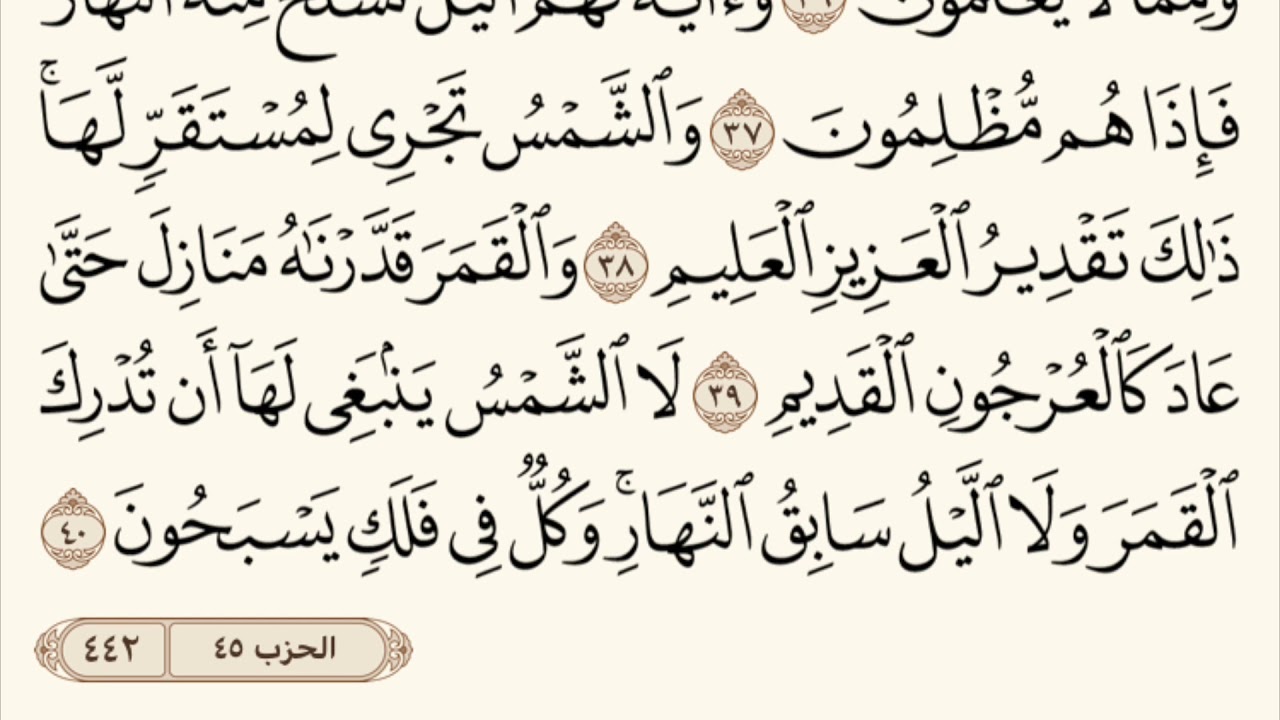 وَمِمَّا لَا يَعْلَمُونَ ٣٦ وَءَايَةٌ لَّهُمُ ٱلَّيْلُ نَسْلَخُ مِنْهُ ٱلنَّهَارَ
فَإِذَا هُم مُّظْلِمُونَ ٣٧ وَٱلشَّمْسُ تَجْرِى لِمُسْتَقَرٍّ لَّهَاۚ
ذَٰلِكَ تَقْدِيرُ ٱلْعَزِيزِ ٱلْعَلِيمِ ٣٨ وَٱلْقَمَرَ قَدَّرْنَٰهُ مَنَازِلَ حَتَّىٰ
عَادَ كَٱلْعُرْجُونِ ٱلْقَدِيمِ ٣٩ لَا ٱلشَّمْسُ يَنۢبَغِى لَهَآ أَن تُدْرِكَ
ٱلْقَمَرَ وَلَا ٱلَّيْلُ سَابِقُ ٱلنَّهَارِۚ وَكُلٌّ فِى فَلَكٍ يَسْبَحُونَ ٤٠
الحزب ٤٥ ٤٤٢